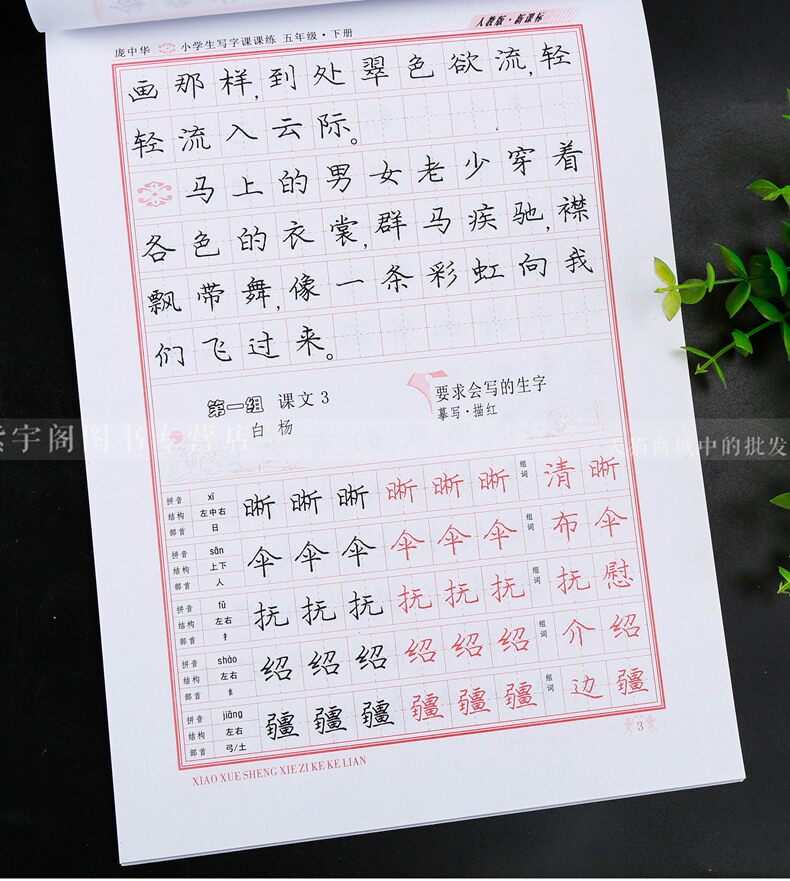 庞中华 小学生写字课课练 五年级·下册
人教版·新课标
画那样,到处翠色欲流,轻
轻流入云际。
马上的男女老少穿着
各色的衣裳,群马疾驰,襟
飘带舞,像一条彩虹向我
们飞过来。
第一组 课文3
白杨
要求会写的生字
摹写·描红
宇阁图书专营店
天猫商城中的批发
拼音 xī
结构 左中右
部首 日
晰晰晰晰晰晰 组词 清晰
拼音 sǎn
结构 上下
部首 人
伞伞伞伞伞伞 组词 布伞
拼音 fǔ
结构 左右
部首 扌
抚抚抚抚抚抚 组词 抚慰
拼音 shào
结构 左右
部首 纟
绍绍绍绍绍绍 组词 介绍
拼音 jiāng
结构 左右
部首 弓/土
疆疆疆疆疆疆 组词 边疆
3
XIAO XUE SHENG XIE ZI KE KE LIAN